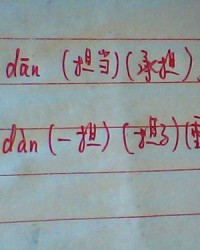 dān (担当)(承担)
dàn (一担)(担子)(